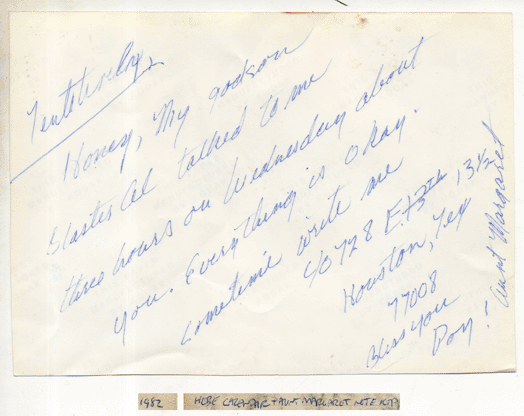 Tentetively,
Honey, My godson
Blaster Al talked to me
three hours on Wednesday about
you. Everything is okay.
sometime write me
728 E. 13½
Houston, Tex
77008
Bless you
Aunt Margaret
1982 + AUNT MARGARET NOTE